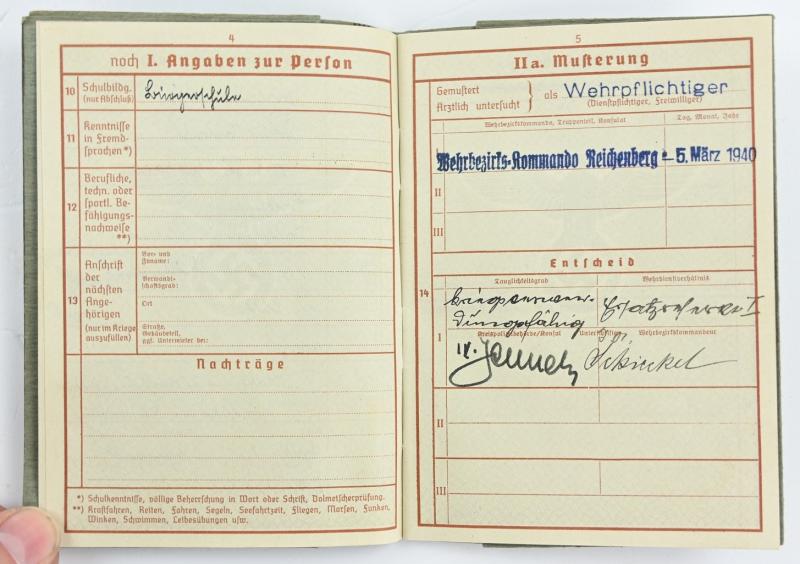 4
noch I. Angaben zur Person
10 Schulbildg. (nur Abschluß)
Bürgerschule
11 Kenntnisse in Fremdsprachen *)
12 Berufliche, techn. oder sportl. Befähigungsnachweise **)
13 Anschrift der nächsten Angehörigen (nur im Kriege auszufüllen)
Vor- und Zuname:
Verwandtschaftsgrad:
Ort
Straße, Gebäudeteil, ggf. Untermieter bei:
Nachträge
*) Schulkenntnisse, völlige Beherrschung in Wort oder Schrift, Dolmetscherprüfung.
**) Kraftfahren, Reiten, Fahren, Segeln, Seefahrtzeit, Fliegen, Morsen, Funken,
Winken, Schwimmen, Leibesübungen usw.
5
IIa. Musterung
Gemustert
Ärztlich untersucht
als Wehrpflichtiger
(Dienstpflichtiger, Freiwilliger)
Wehrbezirkskommando, Truppenteil, Konsulat
Tag, Monat, Jahr
Wehrbezirks-Kommando Reichenberg - 5. März 1940
II
III
Entscheid
14
Tauglichkeitsgrad
Wehrdienstverhältnis
kriegsverwen-
dungsfähig
Ersatzreserve I
I
Kreispolizeibehörde/Konsul
Unterschrift
Wehrbezirkskommandeur
II
III